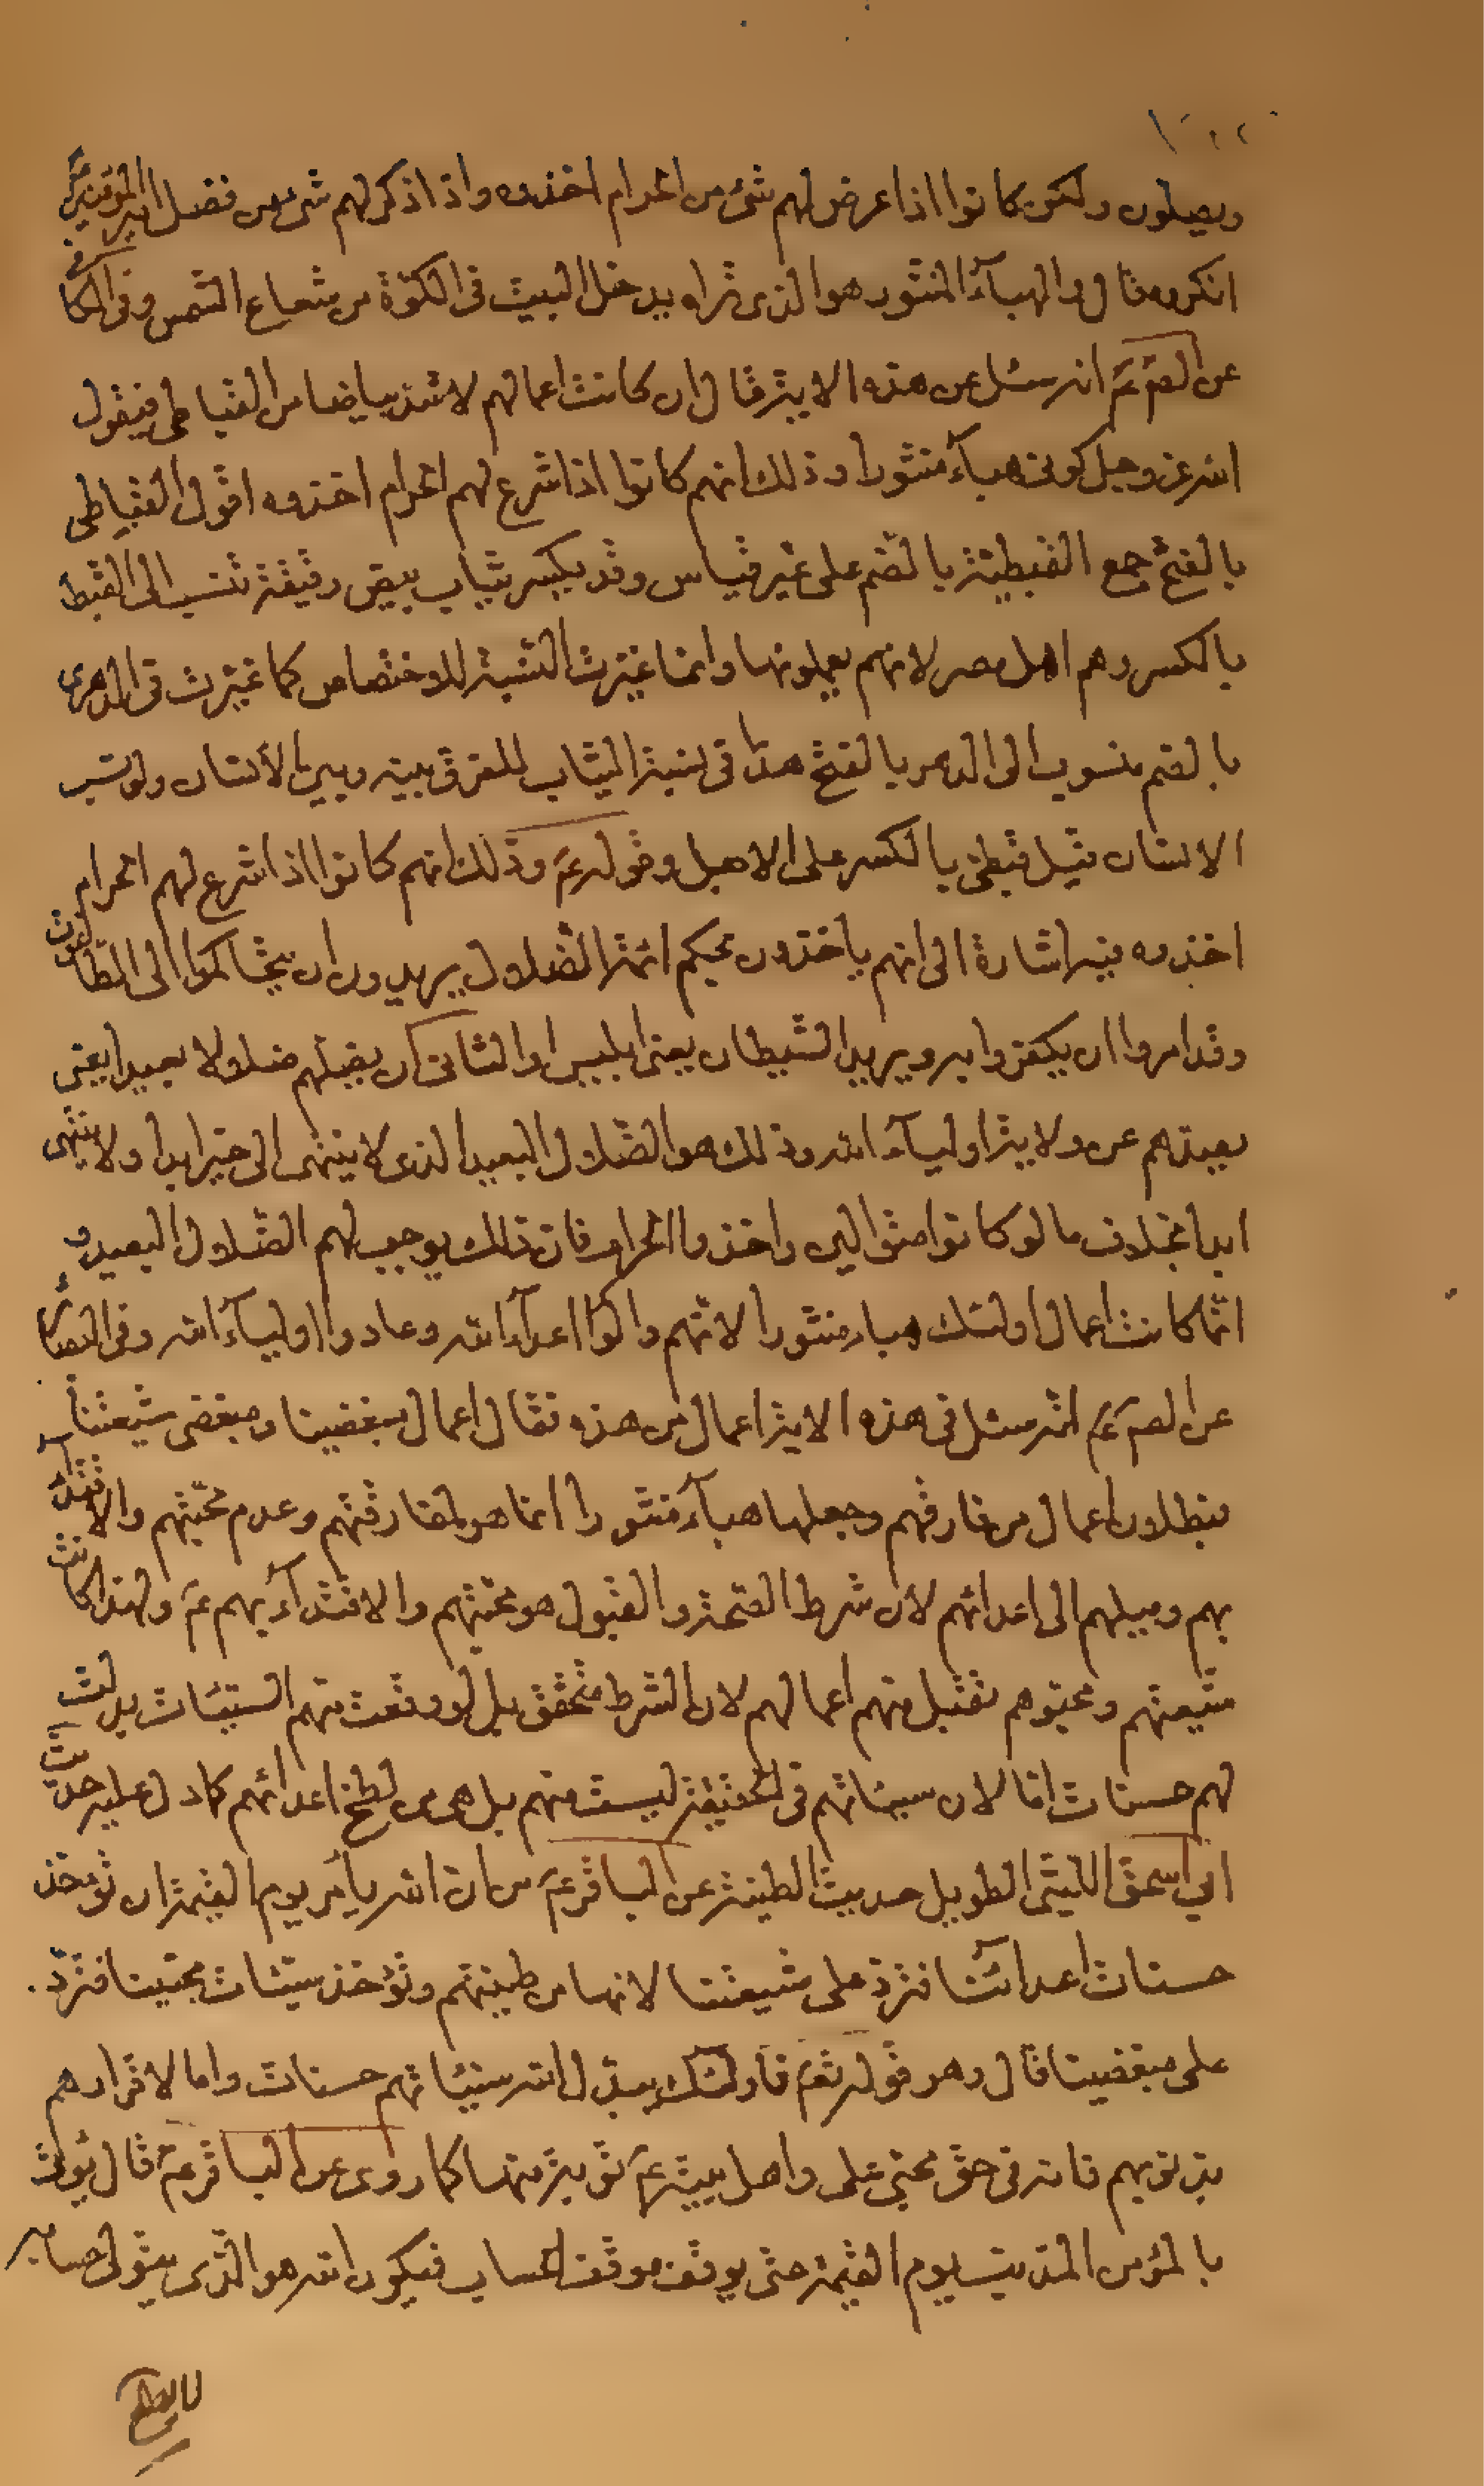 ويصلون ولكن كانوا اذا عرض لهم شئ من الحرام اخذوه واذا ذكر لهم شئ من فضل امير المؤمنين ع
انكروه قال والهباء المنثور هو الذى تراه يدخل البيت فى الكوّة من شعاع الشمس وفى الكافى
عن الصّ عَ انه سئل عن هذه الاية قال ان كانت اعمالهم لاشدّ بياضا من القباطى فيقول
الله عز وجل كونى هباءً منثورا وذلك انهم كانوا اذا شرع لهم الحرام اخذوه اقول القباطى
بالفتح جمع القبطيّة بالضّم على غير قياس وقد يكسر ثياب بيض رقيقة تنسب الى القبط
بالكسر وهم اهل مصر لانهم يعملونها وانما غيّرت النسبة للاختصاص كما غيّرت فى الدهرى
بالضم منسوب الى الدهر بالفتح هذا فى نسبة الثياب للفرق بينه وبين الأنسان ولو نسب
الانسان قيل قبطىّ بالكسر على الاصل وقوله عَ وذلك انهم كانوا اذا شرع لهم الحرام
اخذوه فيه اشارة الى انهم ياخذون بحكم ائمة الضّلال يريدون ان يتحاكموا الى الطاغوت
وقد امروا ان يكفروا به ويريد الشّيطان يعنى ابليس او الثانى ان يضلّهم ضلالا بعيدا يعنى
يعيدهم عن ولاية اولياء الله وذلك هو الضّلال البعيد الذى لا ينتهى الى خير ابدا ولا ينتهى
ابدا بخلاف ما لو كانوا متوالين واخذوا الحرام فان ذلك يوجب لهم الضّلال البعيد و
انّما كانت اعمال اولئك هباء منثورا لانّهم والوا اعداء الله وعادوا اولياء الله وفى البصائر
عن الصّ عَ انّه سئل فى هذه الاية اعمال من هذه فقال اعمال مبغضينا ومبغضى شيعتنا
فبطلان اعمال من فارقهم وجعلها هباءً منثورا انما هو لمفارقتهم وعدم محبّتهم والاقتداء
بهم وميلهم الى اعدائهم لأن شرط الصّحة والقبول هو محبّتهم والاقتداء بهم عَ ولهذا كانت
شيعتهم ومحبّوهم تقبل منهم اعمالهم لان الشرط متحقق بل لو وقعت منهم السيّئات بدلت
لهم حسنات امّا لان سيئاتهم فى الحقيقة ليست منهم بل هى من لطخ اعدائهم كما دل عليه حديث
ابى اسحق الليثى الطويل حديث الطينة عن الباقر عَ من ان الله يأمر يوم القيمة ان تؤخذ
حسنات اعدائنا فتردّ على شيعتنا لانها من طينتهم وتؤخذ سيّئات محبّينا فتردّ
على مبغضينا قال وهو قوله تعَ فاولئك يبدّل الله سيّئاتهم حسنات واما لاقرارهم
بذنوبهم فانه فى حق محبّى على واهل بيته عَ توبة منها كما روى عن الباقر عَ قال يؤت
بالمؤمن المذنب يوم القيمة حتى يوقف موقف الحساب فيكون الله هو الذى يتولى حسابه